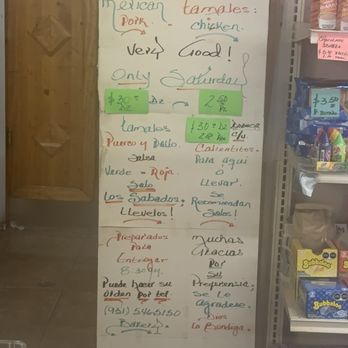 Mexican tamales:
Pork. chicken.
Very Good!
Only Saturday
$30 = Dz 2.50 Pz
$30 = Dz
2.50 Pz c/u
tamales Calientitos.
Puerco y Pollo. Para aqui
Salsa o
Verde - Roja. Llevar.
Solo Se
Los Sabados. Recomiendan
Llevelos! Solos!
Preparados Muchas
Para Gracias
Entregar Por
8:30 am. Su
Puede hacer su Preferensia;
Orden por tel. Se Le
(951) 546 5150 Agradese.
Bakery Dios
Lo Bendiga.
$3.50
Bubbaloo
Bubbaloo